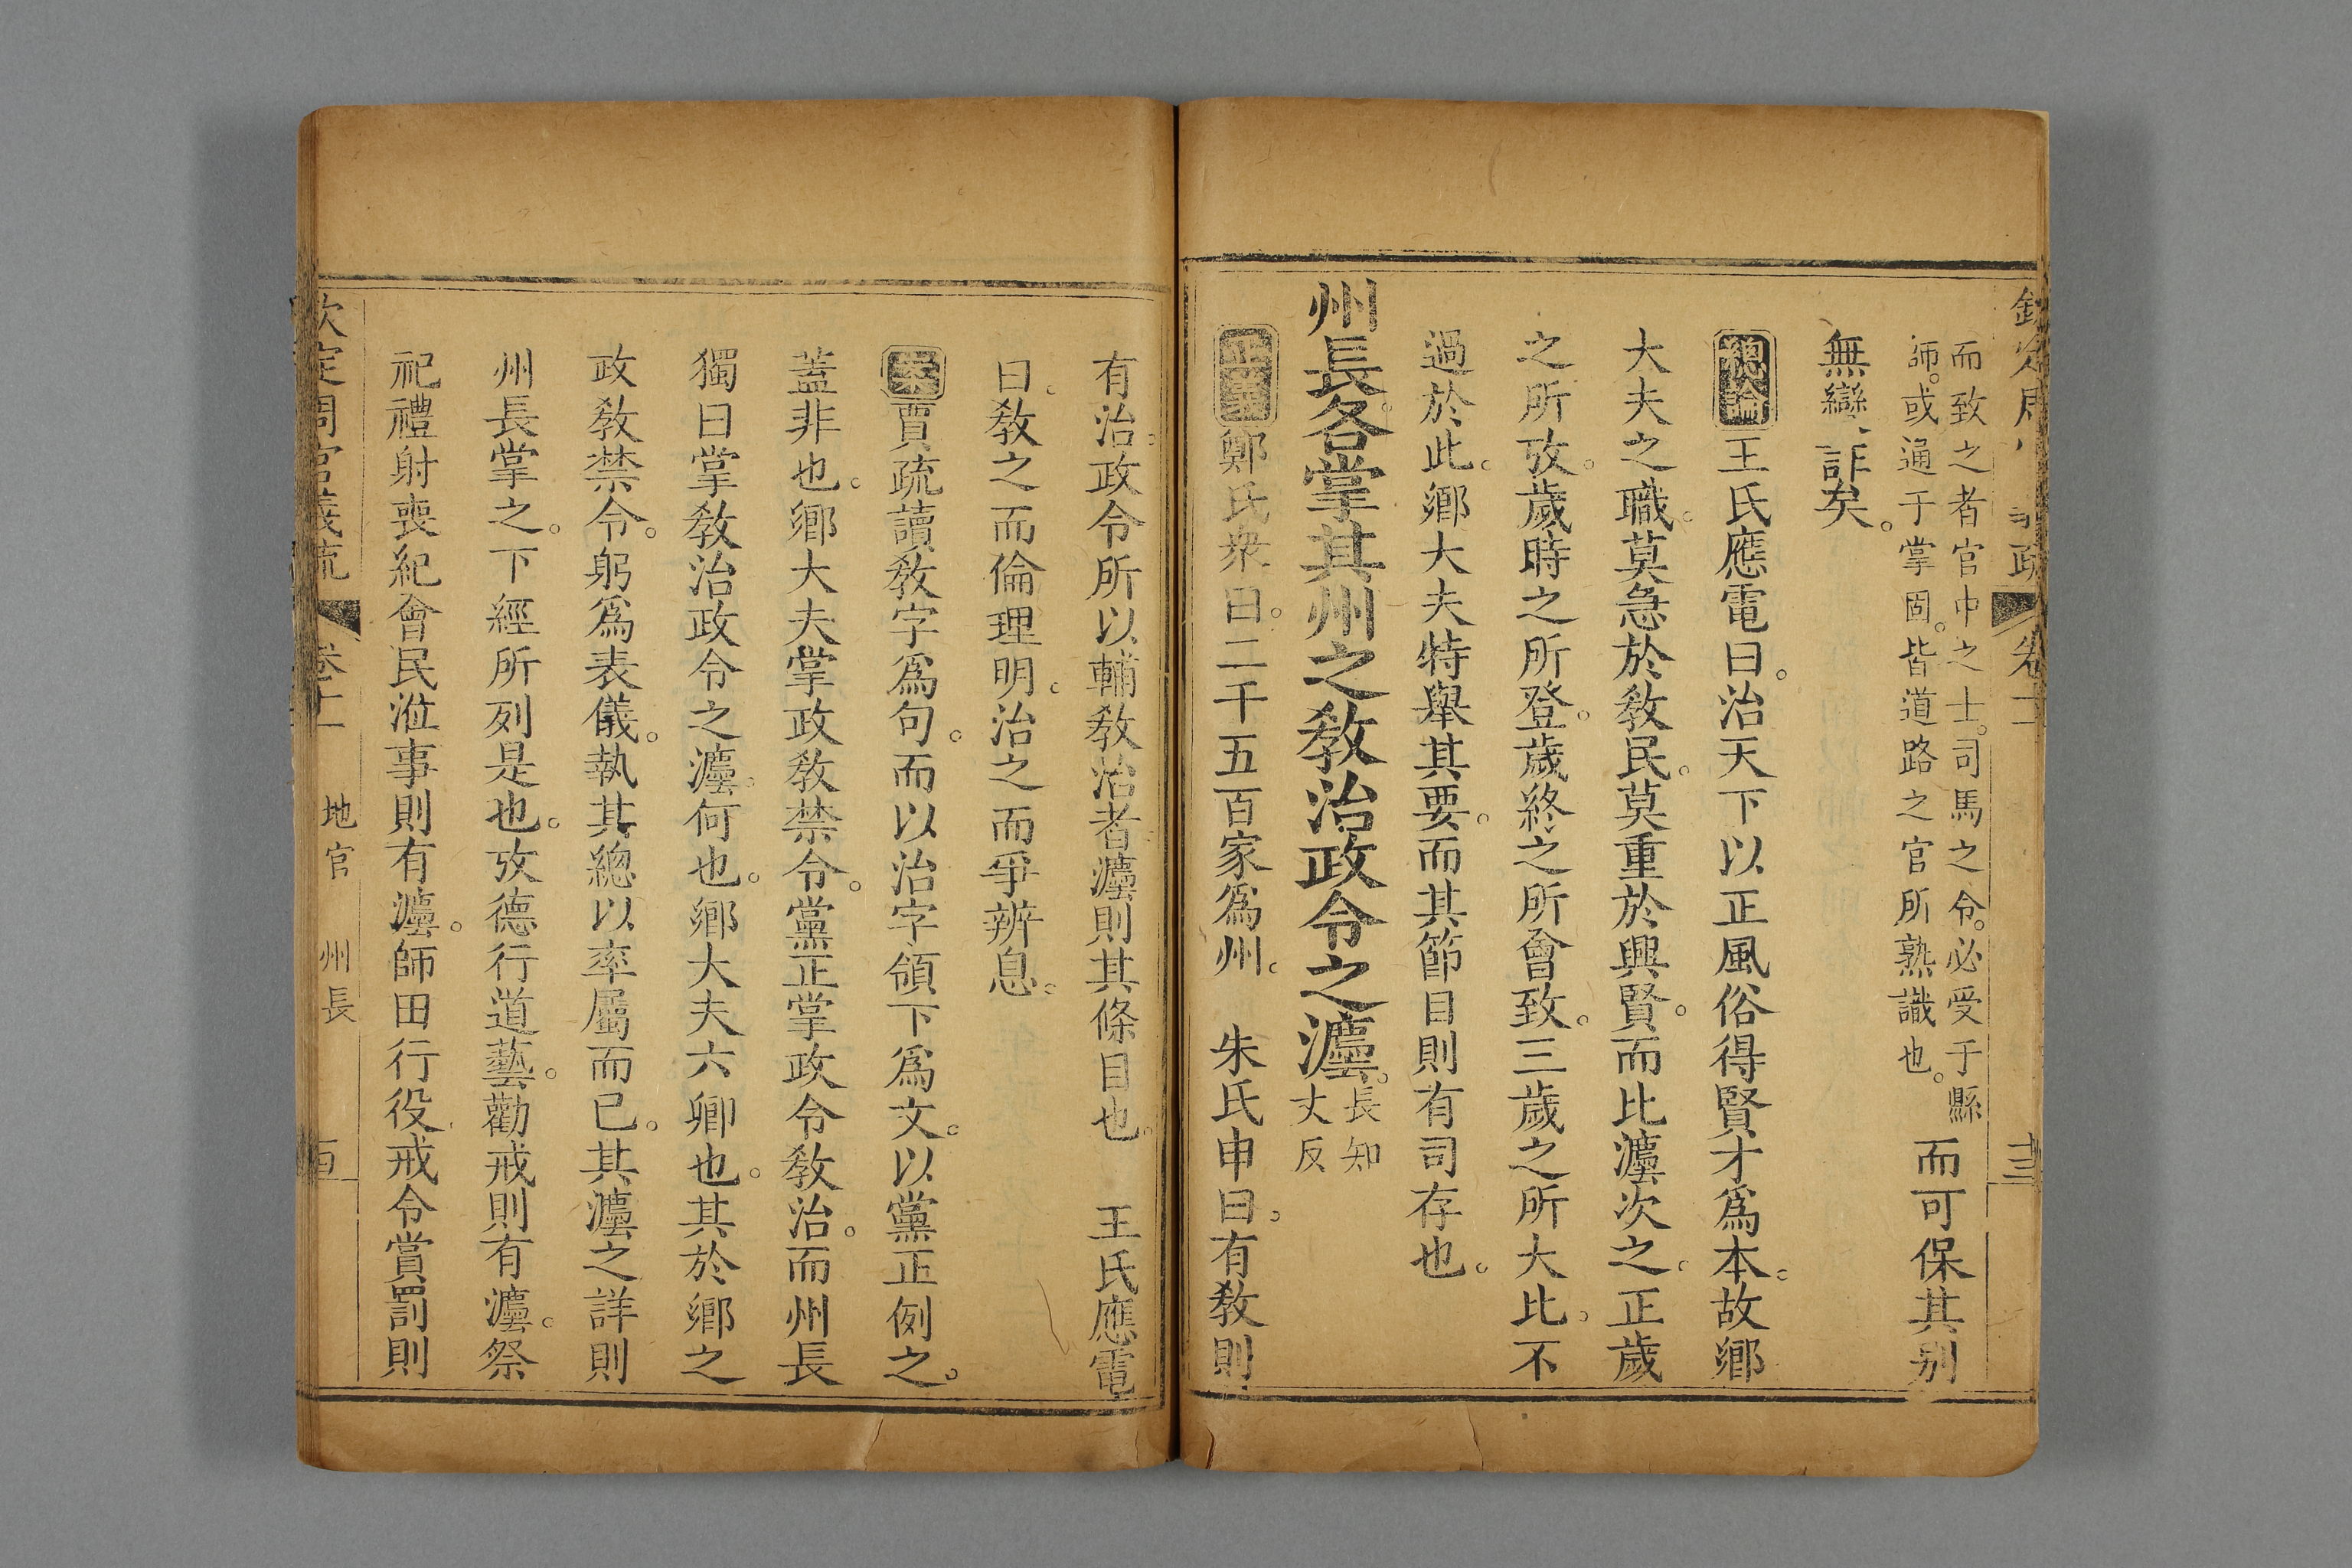 而致之者官中之士。司馬之令。必受于縣
師。或通于掌固。皆道路之官所熟識也。
而可保其别
無變詐矣。
總論王氏應電曰。治天下以正風俗得賢才爲本。故鄉
大夫之職。莫急於敎民。莫重於興賢。而比灋次之。正歲
之所攷。歲時之所登。歲終之所會致。三歲之所大比。不
過於此。鄉大夫特舉其要。而其節目則有司存也。
州長各掌其州之敎治政令之灋。
長知
丈反
正義鄭氏衆曰。二千五百家爲州。 朱氏申曰。有敎則
有治。政令所以輔敎治者。灋則其條目也。 王氏應電
曰。敎之而倫理明。治之而爭辨息。
案賈疏讀敎字爲句。而以治字領下爲文。以黨正例之。
蓋非也。鄉大夫掌政敎禁令。黨正掌政令敎治。而州長
獨曰掌敎治政令之灋。何也。鄉大夫六卿也。其於鄉之
政敎禁令。躬爲表儀。執其總以率屬而已。其灋之詳則
州長掌之。下經所列是也。攷德行道藝。勸戒則有灋。祭
祀禮射喪紀會民涖事則有灋。師田行役戒令賞罰則
欽定周官義疏 卷十一 地官 州長